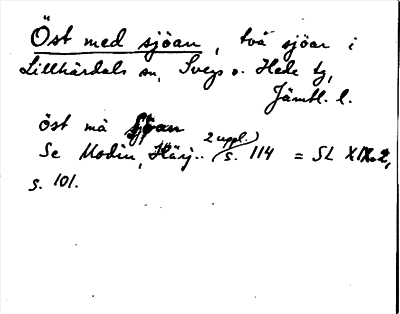 Öst med sjöan, två sjöar i
Lillhärdals sn, Svegs o. Hede tg,
Jämtl. l.
öst mä sjöan
2 uppl.)
Se Modin, Härj.. (s. 114 = SL XIX.2,
s. 101.